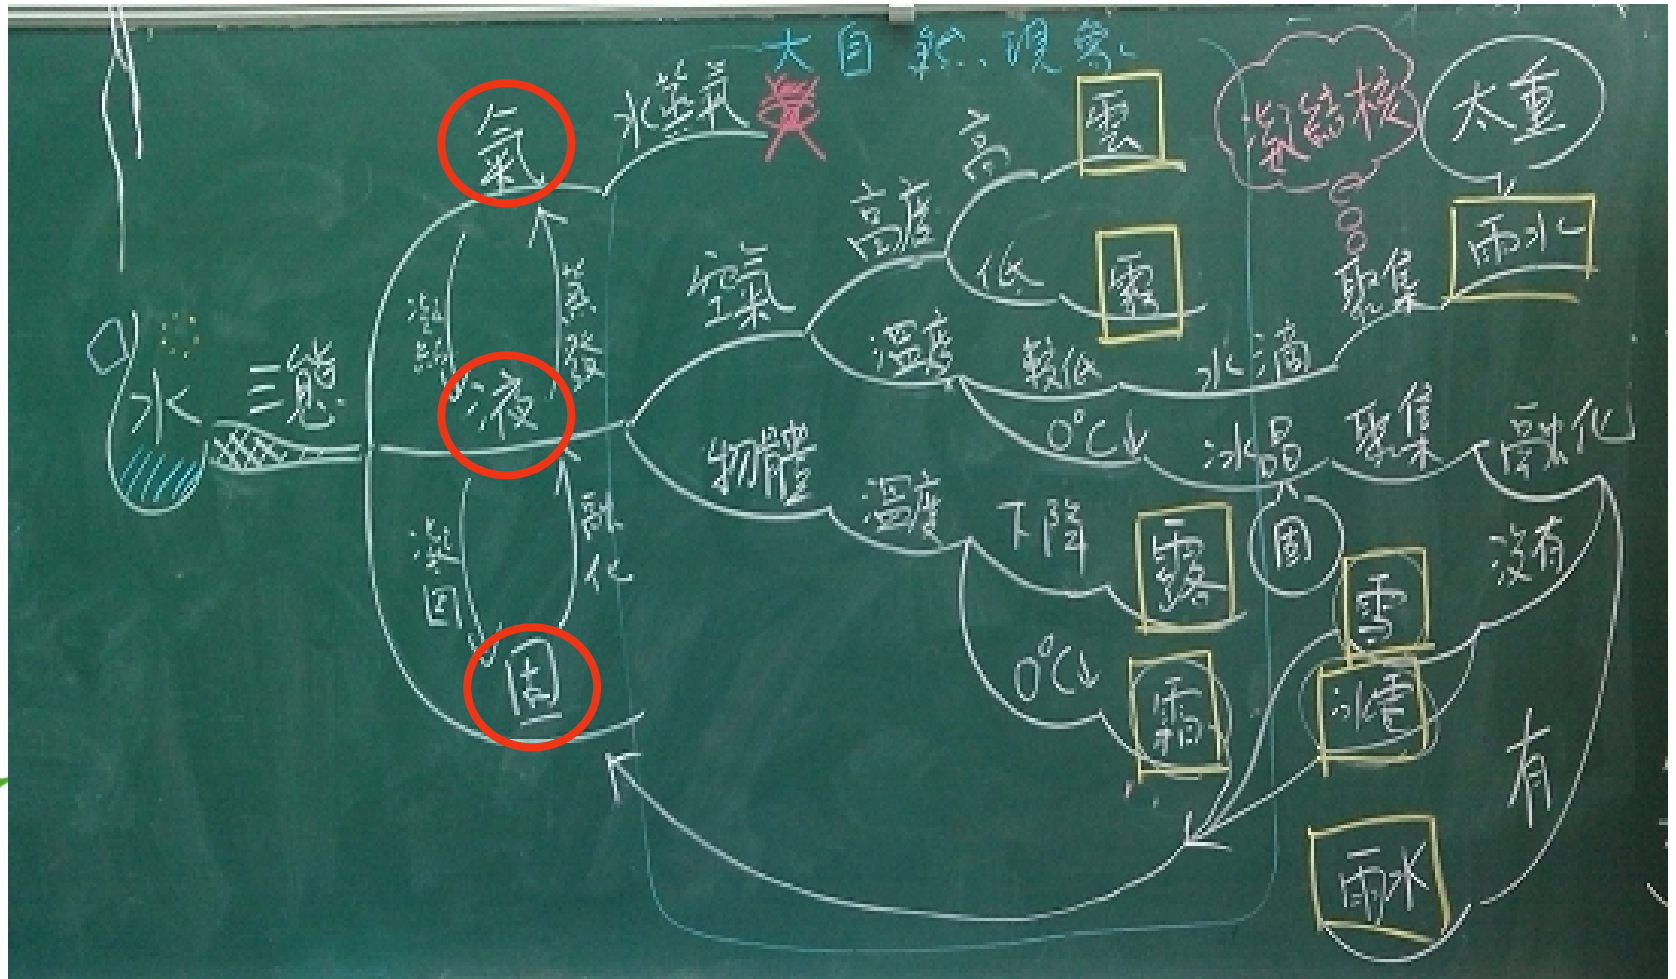 大自然現象
水
三態
氣
水蒸氣
凝結
蒸發
液
凝固
融化
固
空氣
高度
高
雲
低
霧
溫度
較低
水滴
聚集
凝結核
太重
雨水
0°C↓
冰晶
固
聚集
融化
沒有
雪
冰雹
有
雨水
物體
溫度
下降
露
0°C↓
霜